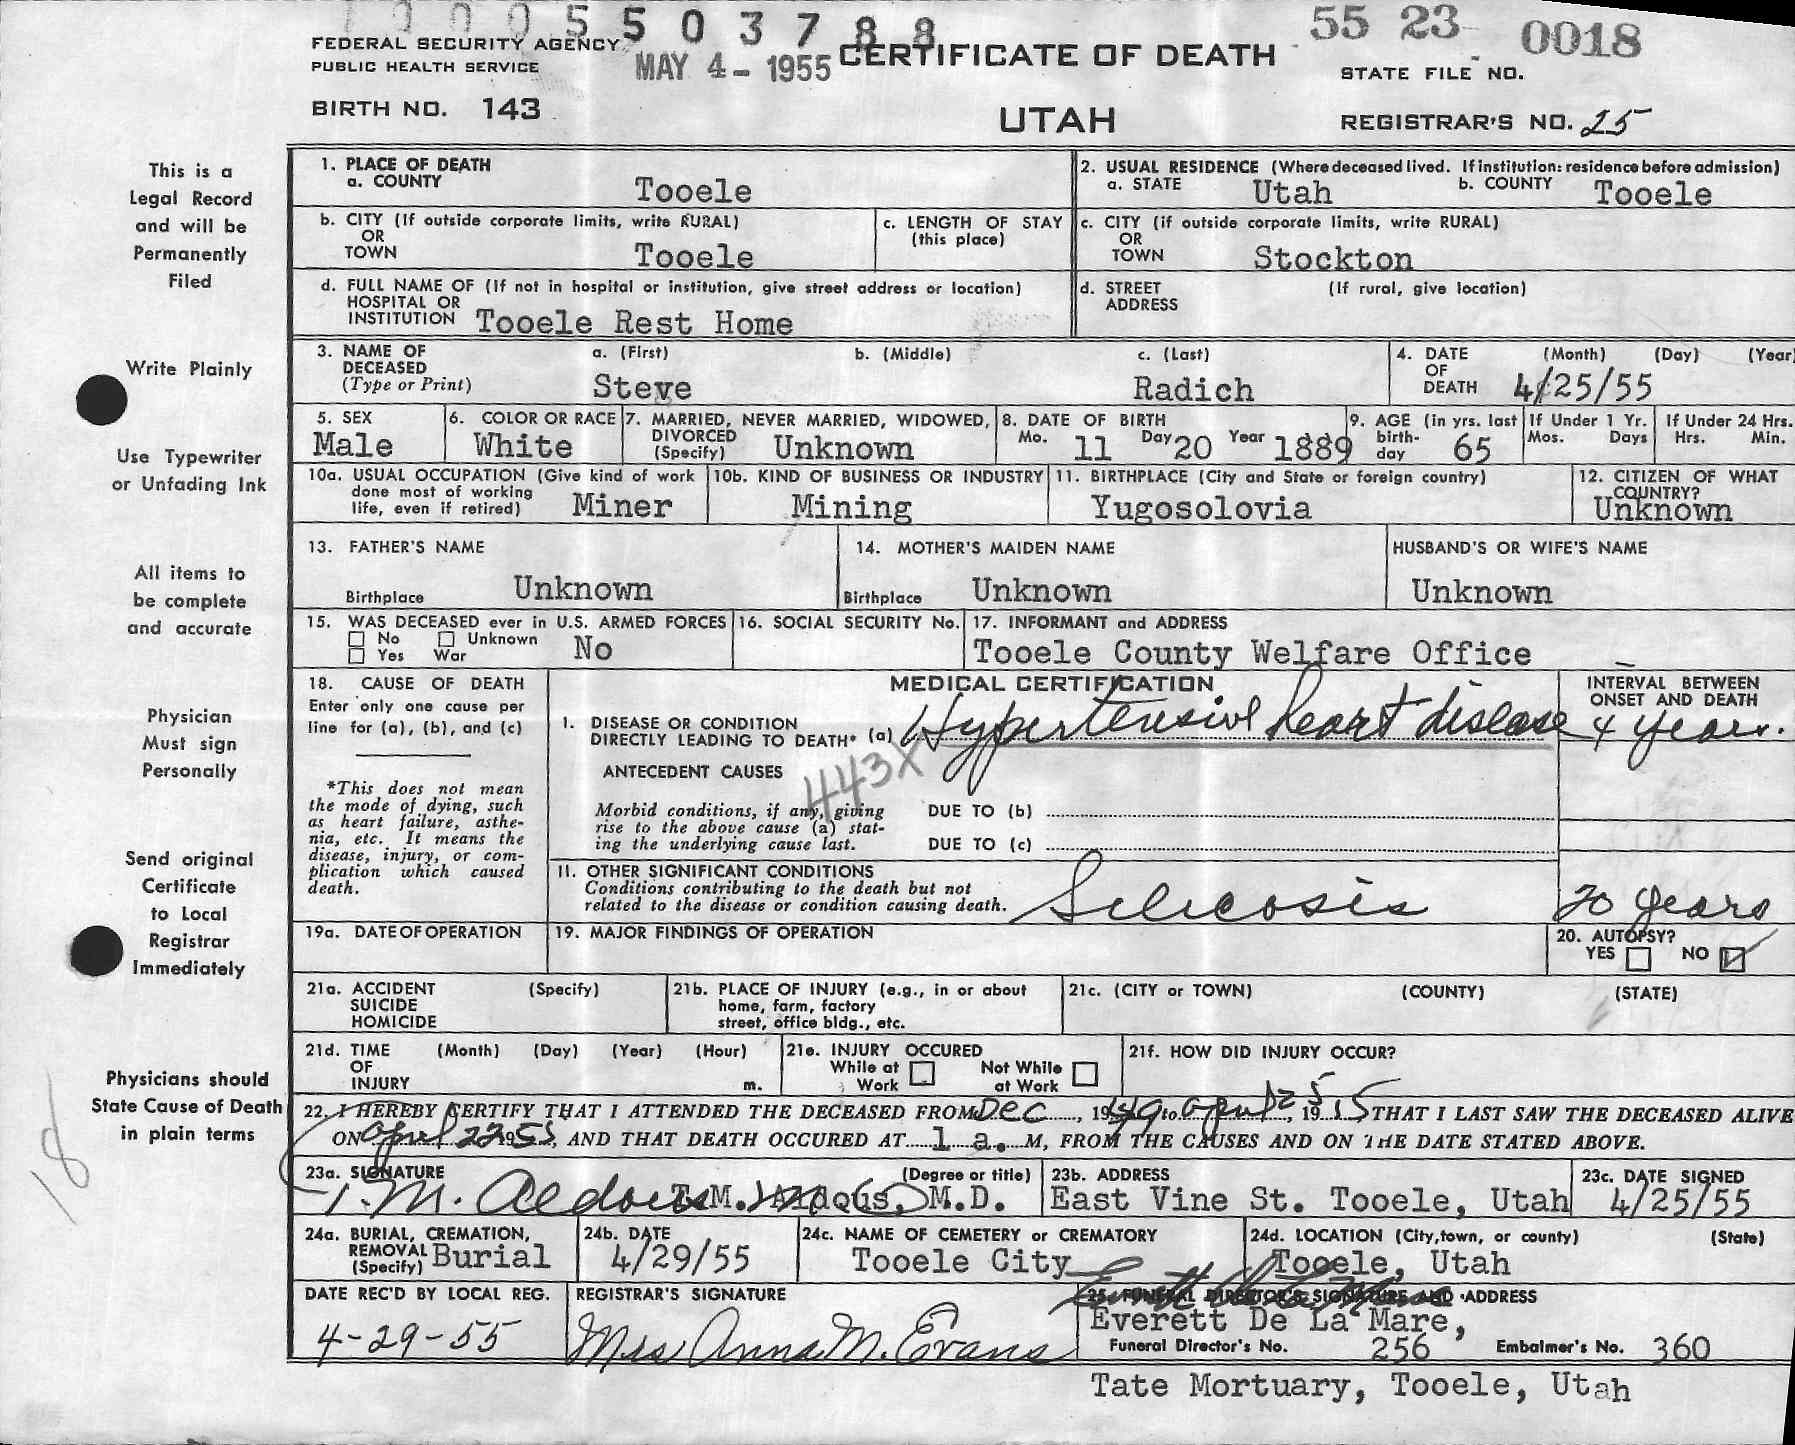 1 0 0 0 5 5 0 3 7 8 8
55 23 0018
FEDERAL SECURITY AGENCY
PUBLIC HEALTH SERVICE
MAY 4 - 1955
CERTIFICATE OF DEATH
STATE FILE NO.
BIRTH NO. 143
UTAH
REGISTRAR'S NO. 25
This is a
Legal Record
and will be
Permanently
Filed
Write Plainly
Use Typewriter
or Unfading Ink
All items to
be complete
and accurate
Physician
Must sign
Personally
Send original
Certificate
to Local
Registrar
Immediately
Physicians should
State Cause of Death
in plain terms
18
1. PLACE OF DEATH
a. COUNTY Tooele
2. USUAL RESIDENCE (Where deceased lived. If institution: residence before admission)
a. STATE Utah b. COUNTY Tooele
b. CITY (If outside corporate limits, write RURAL)
OR
TOWN Tooele
c. LENGTH OF STAY
(this place)
c. CITY (if outside corporate limits, write RURAL)
OR
TOWN Stockton
d. FULL NAME OF (If not in hospital or institution, give street address or location)
HOSPITAL OR
INSTITUTION Tooele Rest Home
d. STREET (If rural, give location)
ADDRESS
3. NAME OF DECEASED
(Type or Print)
a. (First) b. (Middle) c. (Last)
Steve Radich
4. DATE OF DEATH (Month) (Day) (Year)
4/25/55
5. SEX
Male
6. COLOR OR RACE
White
7. MARRIED, NEVER MARRIED, WIDOWED,
DIVORCED
(Specify) Unknown
8. DATE OF BIRTH
Mo. 11 Day 20 Year 1889
9. AGE (in yrs. last
birth-
day 65
If Under 1 Yr.
Mos. Days
If Under 24 Hrs.
Hrs. Min.
10a. USUAL OCCUPATION (Give kind of work
done most of working
life, even if retired) Miner
10b. KIND OF BUSINESS OR INDUSTRY
Mining
11. BIRTHPLACE (City and State or foreign country)
Yugosolovia
12. CITIZEN OF WHAT
COUNTRY?
Unknown
13. FATHER'S NAME
Birthplace Unknown
14. MOTHER'S MAIDEN NAME
Birthplace Unknown
HUSBAND'S OR WIFE'S NAME
Unknown
15. WAS DECEASED ever in U.S. ARMED FORCES
No Unknown
Yes War No
16. SOCIAL SECURITY No.
17. INFORMANT and ADDRESS
Tooele County Welfare Office
18. CAUSE OF DEATH
Enter only one cause per
line for (a), (b), and (c)
*This does not mean
the mode of dying, such
as heart failure, asthe-
nia, etc. It means the
disease, injury, or com-
plication which caused
death.
MEDICAL CERTIFICATION
INTERVAL BETWEEN
ONSET AND DEATH
I. DISEASE OR CONDITION
DIRECTLY LEADING TO DEATH* (a) Hypertensive heart disease 4 years.
443X
ANTECEDENT CAUSES
Morbid conditions, if any, giving
rise to the above cause (a) stat-
ing the underlying cause last.
DUE TO (b)
DUE TO (c)
II. OTHER SIGNIFICANT CONDITIONS
Conditions contributing to the death but not
related to the disease or condition causing death.
Silicosis 20 years
19a. DATE OF OPERATION
19. MAJOR FINDINGS OF OPERATION
20. AUTOPSY?
YES NO
21a. ACCIDENT (Specify)
SUICIDE
HOMICIDE
21b. PLACE OF INJURY (e.g., in or about
home, farm, factory
street, office bldg., etc.
21c. (CITY or TOWN) (COUNTY) (STATE)
21d. TIME (Month) (Day) (Year) (Hour)
OF
INJURY m.
21e. INJURY OCCURED
While at Work Not While at Work
21f. HOW DID INJURY OCCUR?
22. I HEREBY CERTIFY THAT I ATTENDED THE DECEASED FROM Dec, 1949 to April 25, 1955 THAT I LAST SAW THE DECEASED ALIVE
ON April 22 1955, AND THAT DEATH OCCURED AT 1 a. M, FROM THE CAUSES AND ON THE DATE STATED ABOVE.
23a. SIGNATURE (Degree or title)
T.M. Aldous T.M. Aldous, M.D.
23b. ADDRESS
East Vine St. Tooele, Utah
23c. DATE SIGNED
4/25/55
24a. BURIAL, CREMATION,
REMOVAL
(Specify) Burial
24b. DATE
4/29/55
24c. NAME OF CEMETERY or CREMATORY
Tooele City
24d. LOCATION (City, town, or county) (State)
Tooele, Utah
DATE REC'D BY LOCAL REG.
4-29-55
REGISTRAR'S SIGNATURE
Mrs Anna M. Evans
25. FUNERAL DIRECTOR'S SIGNATURE AND ADDRESS
Everett De La Mare
Everett De La Mare,
Funeral Director's No. 256 Embalmer's No. 360
Tate Mortuary, Tooele, Utah